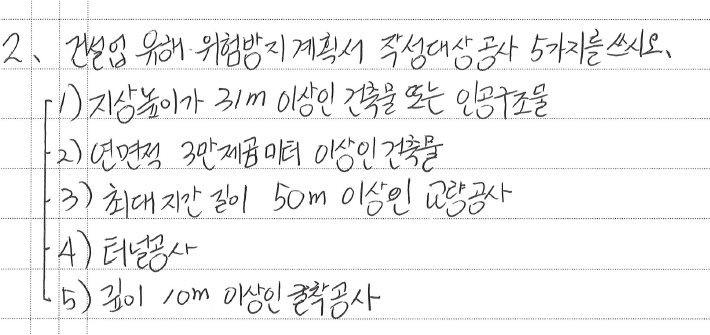 2、 건설업 유해·위험방지계획서 작성대상공사 5가지를 쓰시오、
1) 지상높이가 31m 이상인 건축물 또는 인공구조물
2) 연면적 3만제곱미터 이상인 건축물
3) 최대 지간 길이 50m 이상인 교량공사
4) 터널공사
5) 깊이 10m 이상인 굴착공사